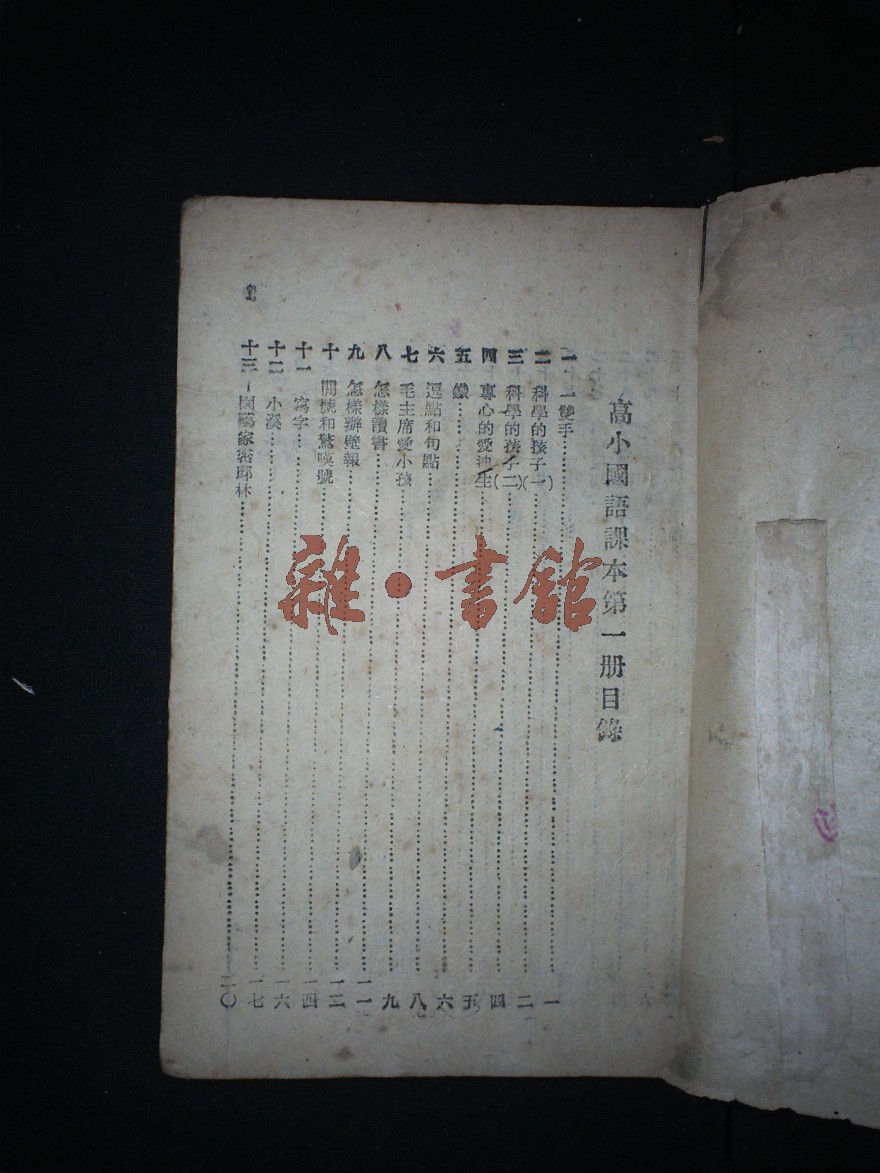 高小國語課本第一册目錄
一 一雙手……一
二 科學的孩子(一)……二
三 科學的孩子(二)……四
四 專心的愛迪生……五
五 鐵……六
六 逗點和句點……八
七 毛主席愛小孩……九
八 怎樣讀書……一一
九 怎樣辦壁報……一二
十 問號和驚嘆號……一四
十一 寫字……一六
十二 小溪……一七
十三 園藝家密邱林……二〇
雜·書館